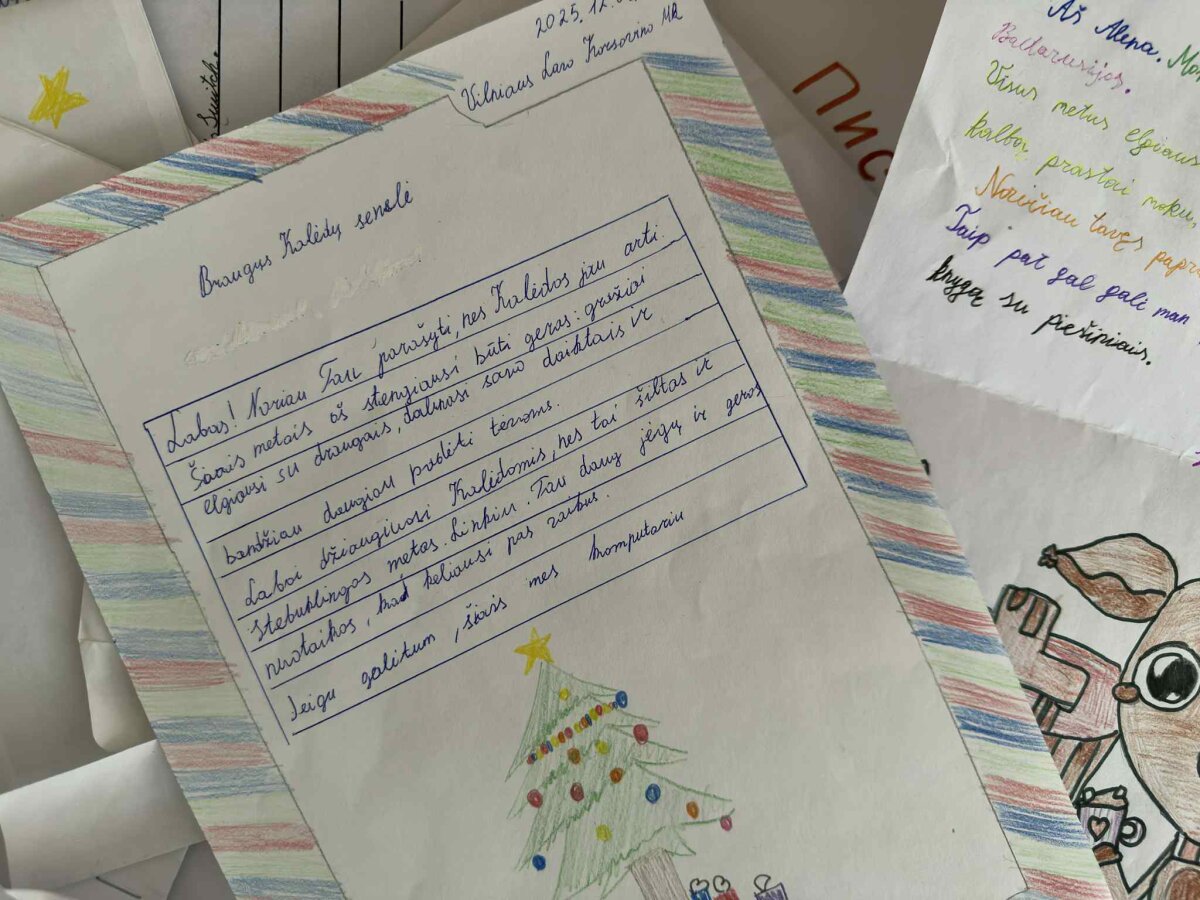 2025.12.
Vilniaus Lavo Korsovino MR
Braugus Kalėdų senelė
Labas! Noriau Tau parašyti, nes Kalėdos jau arti.
Šiais metais aš stengiausi būti geras: gražiai
elgiausi su draugais, dalinausi savo daiktais ir
bandžiau daugiau padėti tėvams.
Labai džiauginuosi Kalėdomis, nes tai šiltas ir
stebuklingas metas. Linkiu Tau daug jėgų ir geros
nuotaikos, kad keliausi pas vaikus.
Jeigu galitum, šiais mes komputariu
Switch.
Пис
Aš Alena.
Baltarusijos.
Visus metus elgiaus
kalbą prastai moku,
Norėčiau tavęs papr
Taip pat gal gali man
knygą su piešiniais.